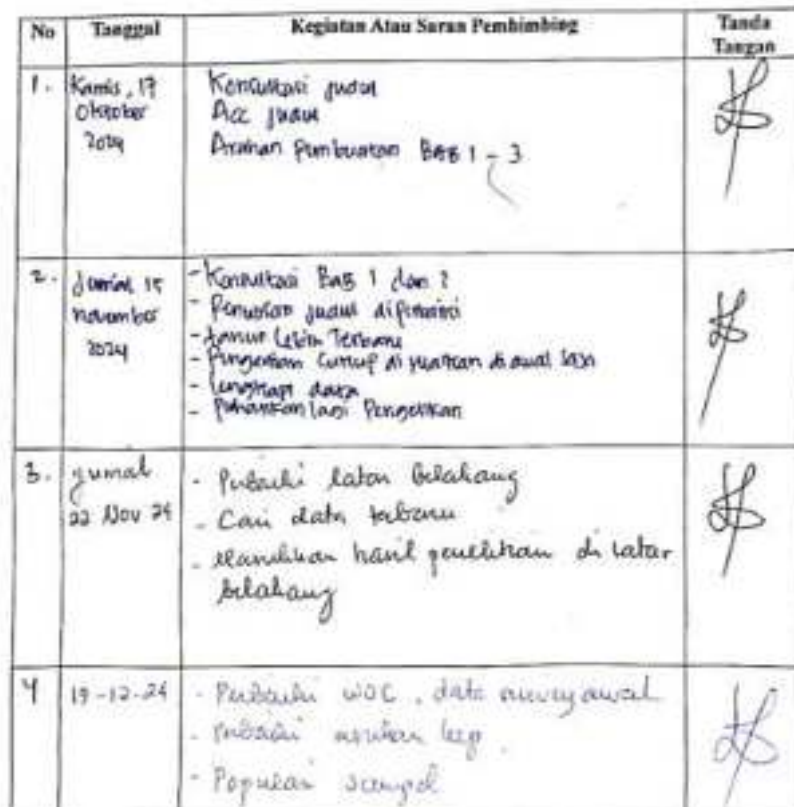 No Tanggal Kegiatan Atau Saran Pembimbing Tanda Tangan
1. Kamis, 17 Oktober 2024
Konsultasi judul
Acc judul
Arahan Pembuatan BAB 1 - 3
2. Jumat 15 November 2024
- Konsultasi BAB 1 dan 2
- Penulisan judul
- Lebih Terbaru
- di awal lagi
- Lengkapi data
- Perhatikan lagi Pengetikan
3. Jumat 22 Nov 24
- Perbaiki latar belakang
- Cari data terbaru
- hasil penelitian di latar
belakang
4 19-12-24
- Perbaiki WOC, data survey awal
- Perbaiki asuhan kep
- Populasi sampel